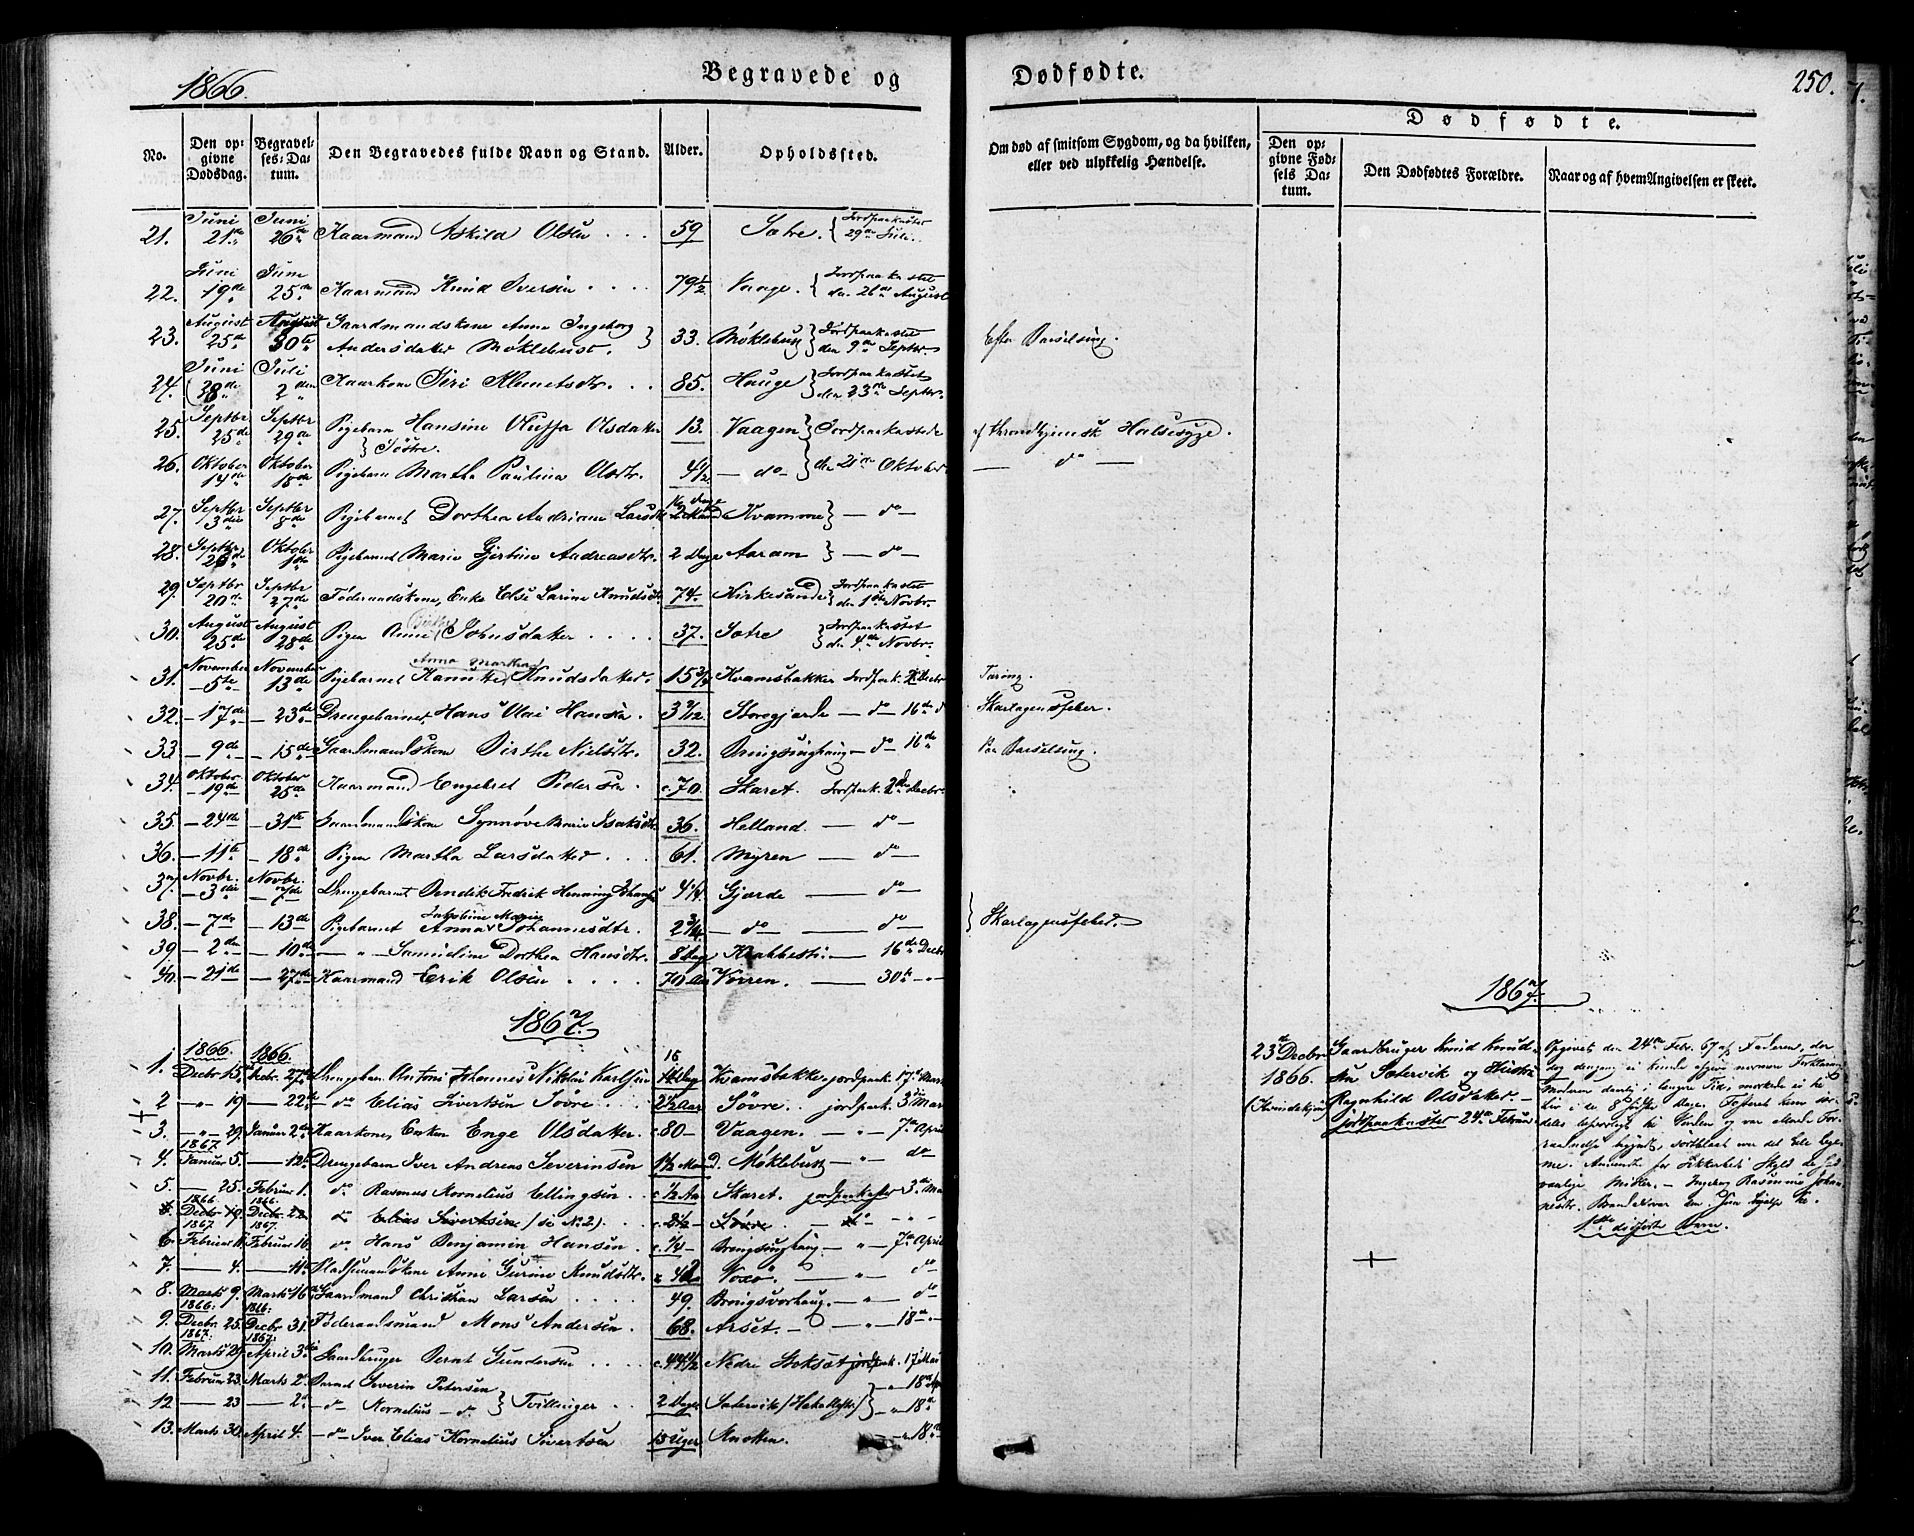 1866.
Begravede og
Dødfødte.
250.
No.
Den opgivne Dødsdag.
Begravelses-Datum.
Den Begravedes fulde Navn og Stand.
Alder.
Opholdssted.
Om død af smitsom Sygdom, og da hvilken, eller ved ulykkelig Hændelse.
Dødfødte.
Den opgivne Fødsels Datum.
Den Dødfødtes Forældre.
Naar og af hvem Angivelsen er skeet.
21. Juni 21de Juni 26de Kaarmand Askild Olsen 59 Sætre. Jordpaakastet 29de Juli.
22. Juni 19de Juni 25de Kaarmand Knud Iversen 79½ Vaage. Jordpaakastet den 26de August
23. August 25de August 30te Gaardmandskone Anne Ingeborg Andersdatter Møklebust. 33. Møklebust Jordpaakastet den 9de Septbr. Efter Barselseng.
24. Juni 28de Juli 2den Kaarkone Siri Klemetsdtr. 85. Hauge Jordpaakastet den 23de Septbr.
25. Septbr 25de Septbr 29de Pigebarn Hansine Oluffa Olsdatter 13. Vaagen Jordpaakastede af throndhjemsk Halssyge.
Søstre.
26. Oktober 14de Oktober 18de Pigebarn Martha Paulina Olsdtr. 4½ — do — den 21de Oktober — do —
27. Septbr 3die Septbr 8de Pigebarnet Dorthea Andriane Larsdtr Kvamme — do —
28. Septbr. 26de Oktober 1ste Pigebarnet Marie Gjertine Andreasdtr. 2 Dage Aaram — do —
29. Septbr 20de Septbr 27de Føderaadskone, Enke Else Larine Knudsdtr 74. Kirkesande Jordpaakastet den 1ste Novbr.
30. August 25de August 28de Pigen Anne Johnsdatter 37. Sætre Jordpaakastet den 4de Novbr.
31. November 5te November 13de Pigebarnet Anne Marthe Knudsdatter. Kvamsbakken Jordpaak. 2 Decbr Tæring.
32. — 17de — 23de Drengebarnet Hans Olai Hansen 3 Storegjerde — do 16de Skarlagensfeber.
33 — 9de — 15de Gaardmandskone Birthe Nielsdtr. 32. — do 16de Paa Barselseng.
34. Oktober 19de Oktober 25de Kaarmand Engebret Pedersen c. 70. Skaret. Jordpaak. 2de Decbr.
35. — 24de — 31te Gaardmandskone Synnøve Marie Isaksdtr 36. Helland. — do —
36. — 11te — 18de Pigen Martha Larsdatter 61. Myren — do —
37. Novbr. 3die Novbr. 7de Drengebarnet Bendik Fredrik Henning Johans 4¼ Gjerde — do —
38. — 7de — 13de Pigebarnet Anna Jakobine Marie Johannesdtr. 2¾ — do — — do — Skarlagensfeber.
39. — 2den — 10de — " — Samueline Dorthea Hansdtr. 8 Dage Krabbesti: — 16de Decbr
40. — 21de — 27de Kaarmand Erik Olsen 70 Aar Vorren. — 30te
1867.
1. 1866. Decbr 15 1866. Decbr. 27de Drengebarn Antoni Johannes Nikolai Karlsen Kvamsbakke jordpaak. 17de Marts
2 — " — 19 — 22de — do Elias Sivertsen Søvre 2½ Aar Søvre jordpaak. 3die Mar
3. — " — 29 Januar 2de Kaarkone, Enken Enge Olsdatter c. 80 — Vaagen. — " — 7de April
4. 1867. Januar 5. — 12te Drengebarn Iver Andreas Severinsen 1½ Maaned. Møklebust — " — do
5 — 25. Februar 1. do Rasmus Kornelius Ellingsen c. ½ Aar Skaret. jordpaakastet 3die Ma
1866. Decbr 19 1866. Decbr. 22 do Elias Sivertsen (se No 2). c. 2½ — Søvre. — do — " — "
6. 1867. Februar 11. 1867. Februar 16 do Hans Benjamin Hansen. c. ¼ — — " — 7de April
7. — 4. — 11te Pladsmandskone Anne Gurine Knudsdtr. 42 Voxø — " — do
8. Marts 9. Marts 16de Gaardmand Christian Larsen 49. — " — do
9. 1866: Decbr. 25. 1866: Decbr 31. Føderaadsmand Mons Andersen. 68. Arset. — " — 18de
10. 1867: Marts 29. 1867: April 3die Gaardbruger Bernt Gundersen c. 44½ Nedre Stoksæt jordpaak. 17 Mai
11. Februar 23. Marts 2. Barnet Severin Petersen — " 18de
12 — 23 — 2de — do Kornelius — do Tvillinger 2 Dage Sætervik — " 18de
13. Marts 30. April 4. — do Iver Elias Kornelius Sivertsen 13 Uger Knotten. — " 18de
1867.
23de Decbr 1866. (Kvindekjøn)
Gaardbruger Knud Knudsen Sætervik og Hustru Ragnhild Olsdatter. — jordpaakastet 24de Februar
Opgivet den 24de Febr. 67 af Faderen, der
dog dengang ei kunde afgive nærmere Forklaring.
Moderen
Liv i de 8 sidste Dage. Fosteret kom
1ste dødfødte Barn.